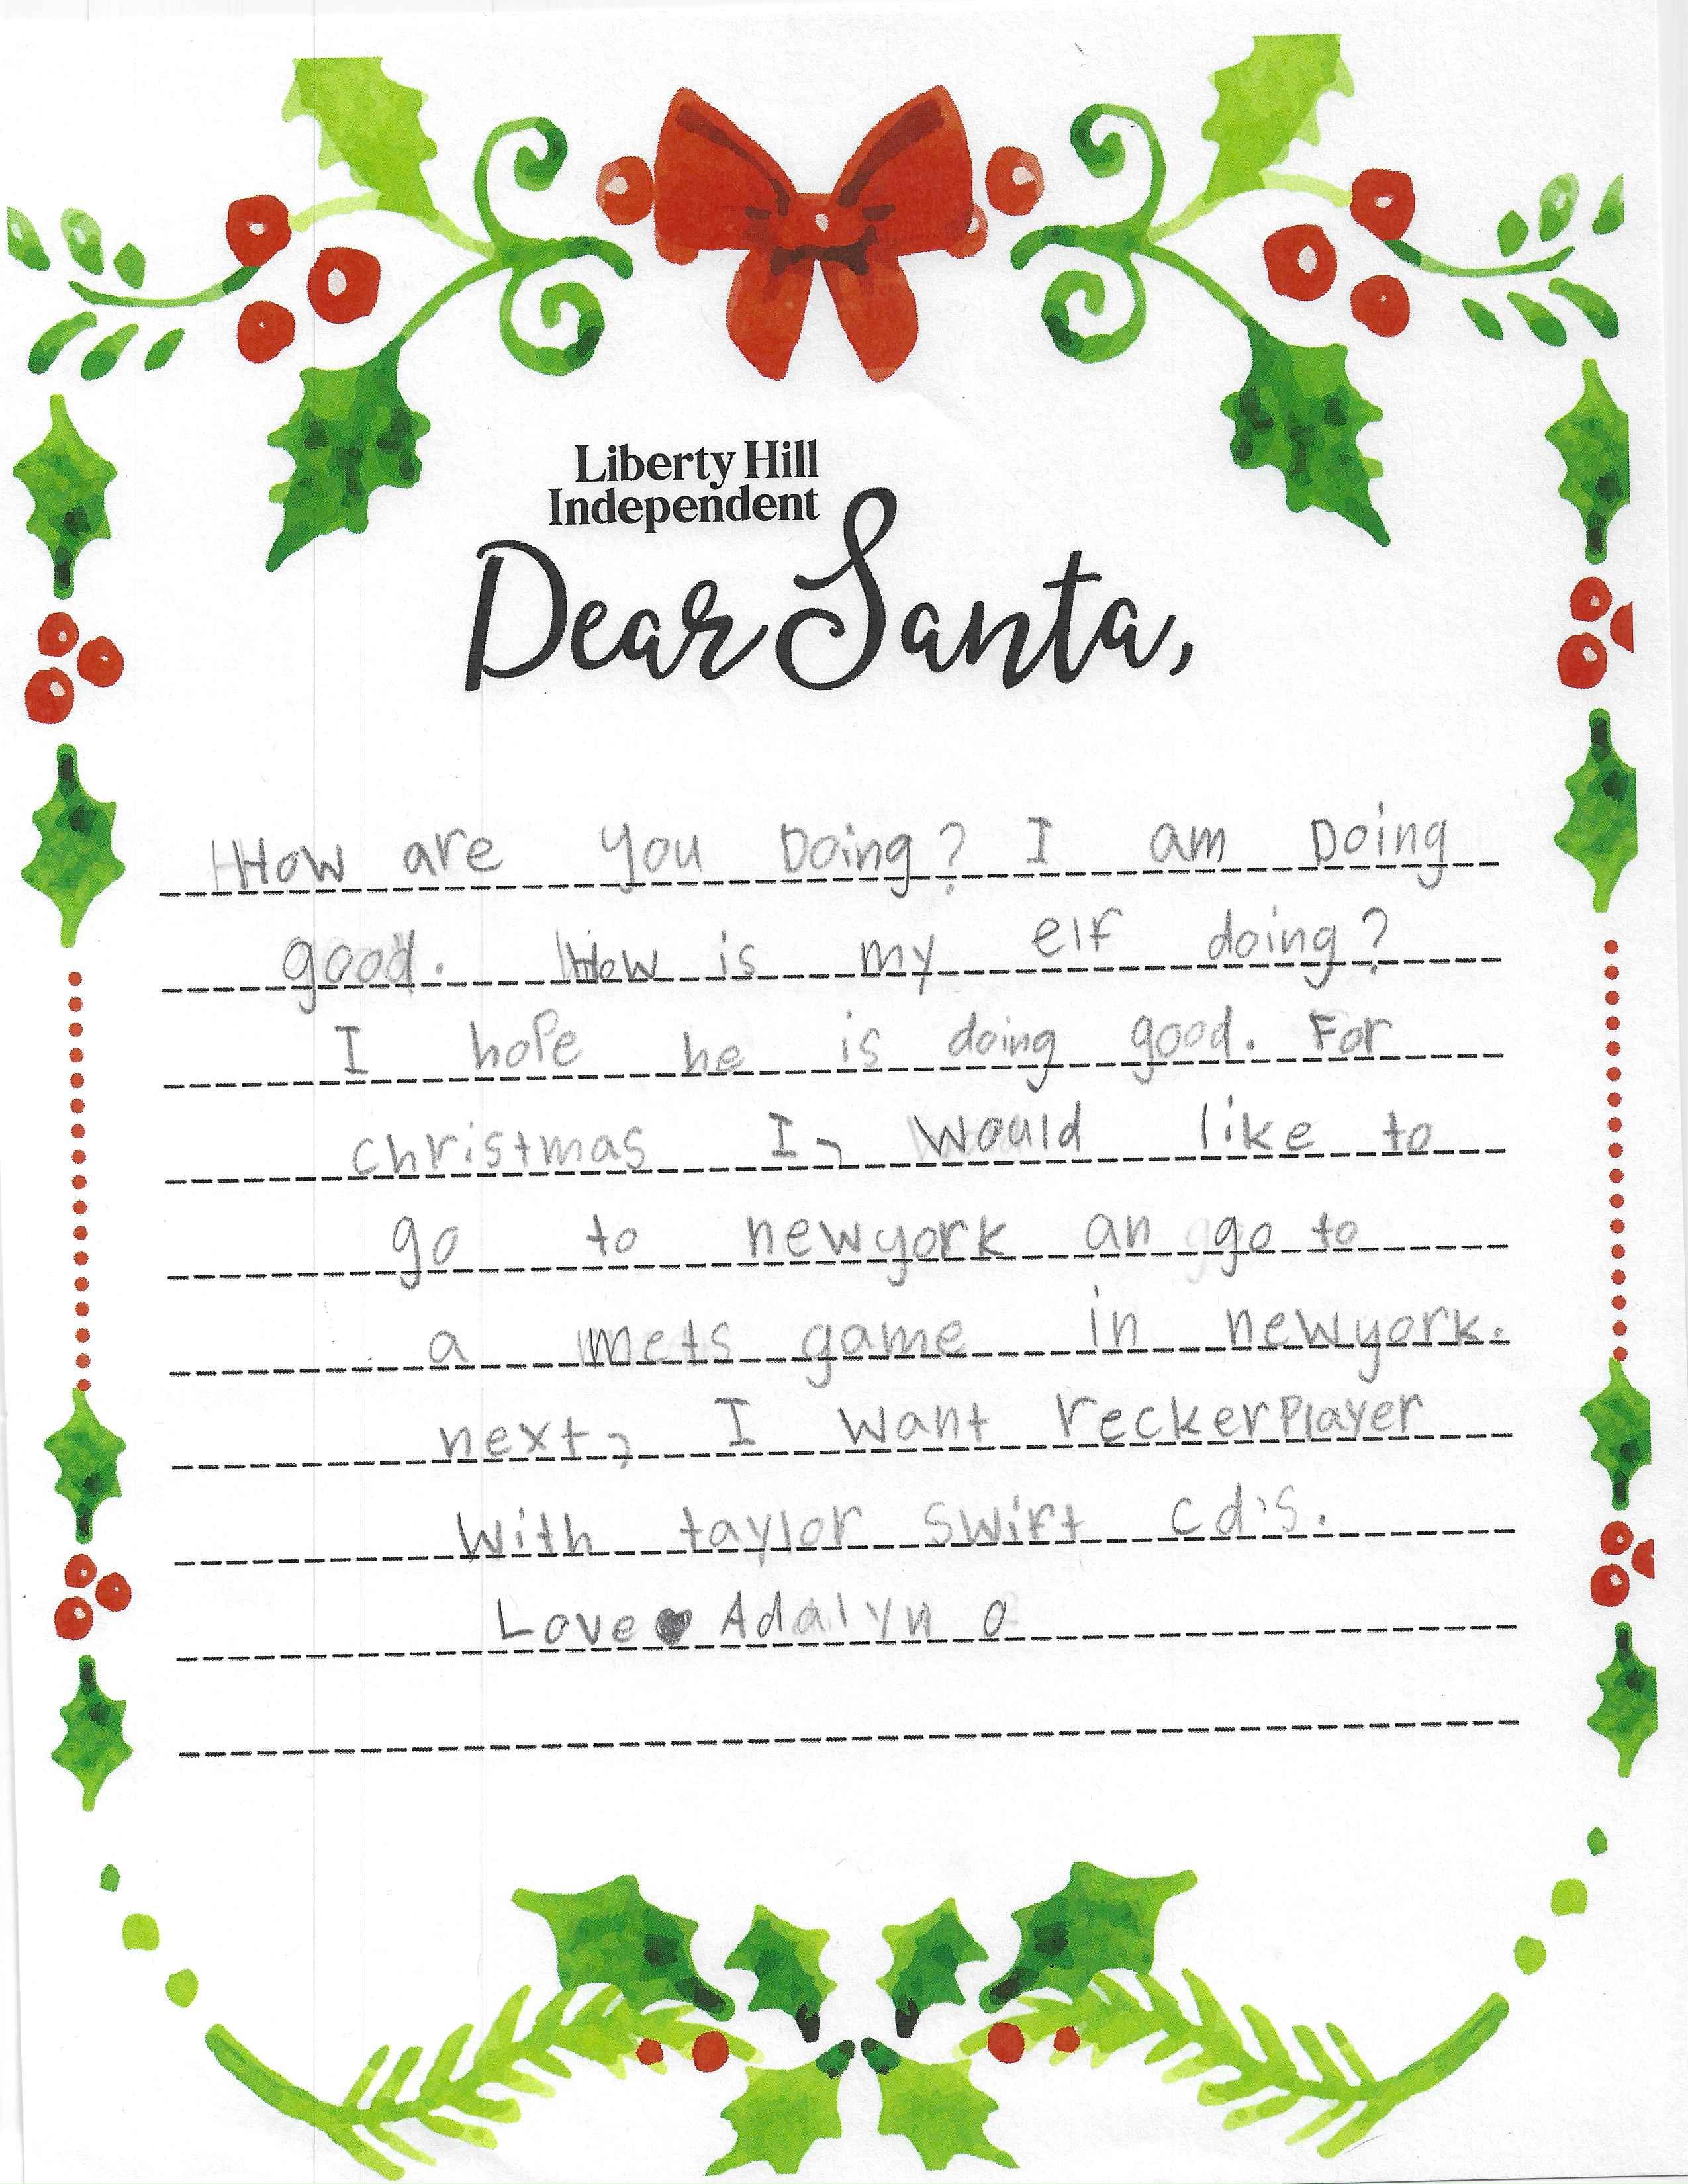 Liberty Hill
Independent
Dear Santa,
How are you Doing? I am Doing
good. How is my elf doing?
I hope he is doing good. For
christmas I, would like to
go to newyork an go to
a mets game in newyork.
next, I want reckerPlayer
With taylor swift cd's.
Love ♥ Adalyn O